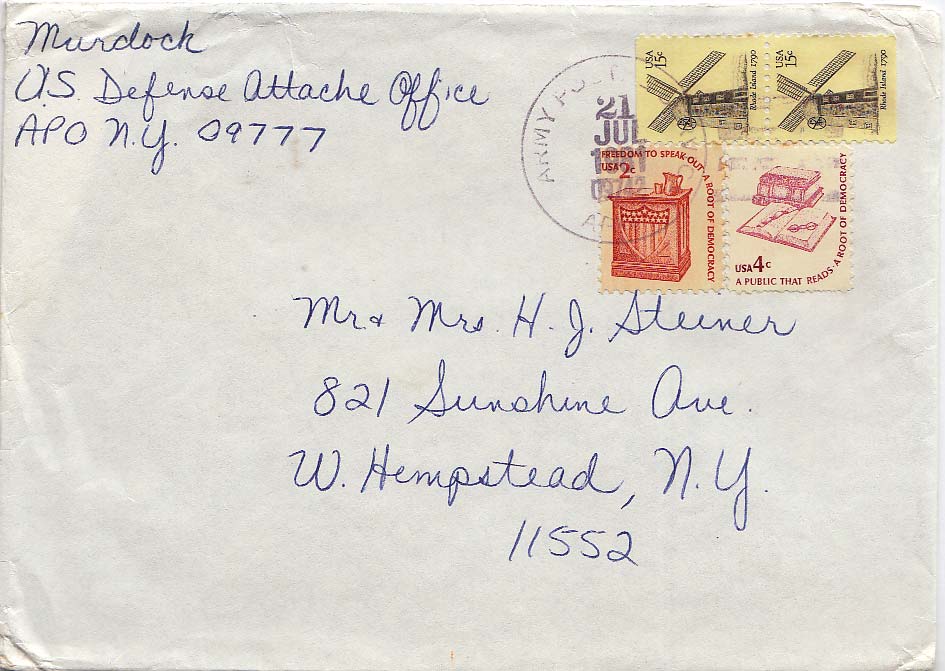 Murdock
U.S. Defense Attache Office
APO N.Y. 09777
USA 15c
Rhode Island 1790
USA 15c
Rhode Island 1790
ARMY
21
JUL
1981
FREEDOM TO SPEAK OUT·A ROOT OF DEMOCRACY
USA 2c
USA 4c
A PUBLIC THAT READS·A ROOT OF DEMOCRACY
Mr. & Mrs. H. J. Steiner
821 Sunshine Ave.
W. Hempstead, N.Y.
11552